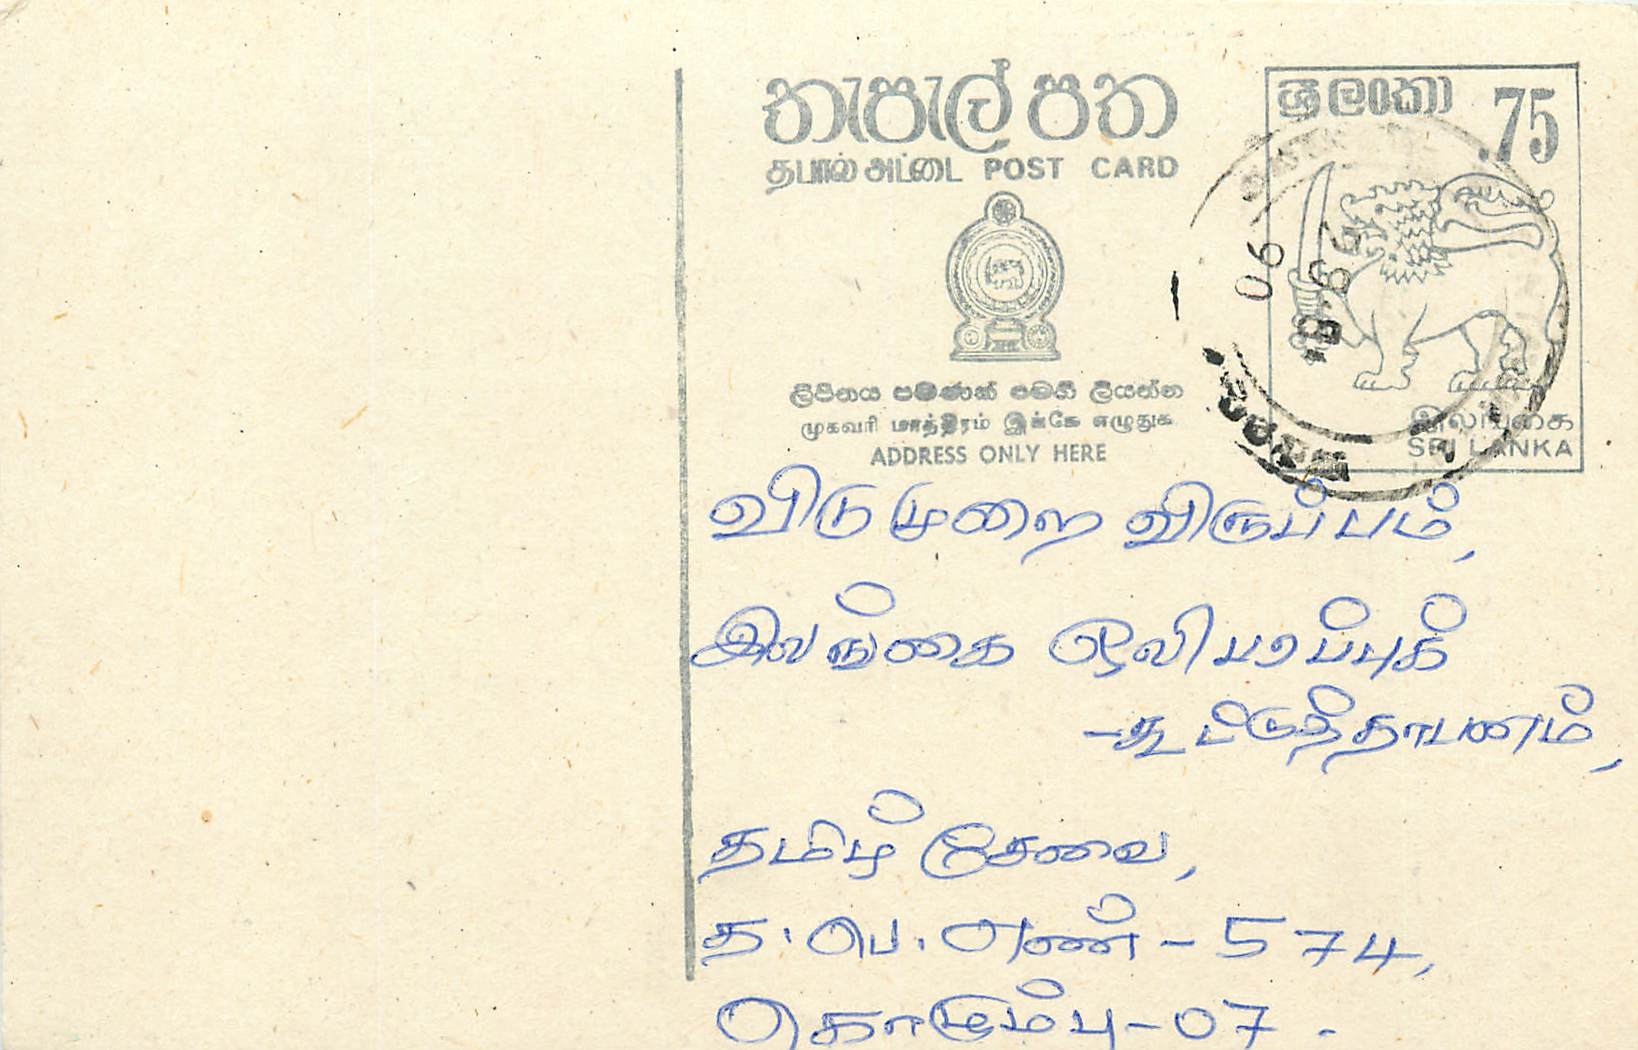 තැපැල් පත
ශ්‍රී ලංකා .75
தபால் அட்டை POST CARD
90
ලිපිනය පමණක් මෙහි ලියන්න
முகவரி மாத்திரம் இங்கே எழுதுக
ADDRESS ONLY HERE
இலங்கை
SRI LANKA
விடுமுறை விருப்பம்,
இலங்கை ஒலிபரப்புக்
-கூட்டுத்தாபனம்,
தமிழ் சேவை,
த.பெ.எண் - 574,
கொழும்பு - 07.